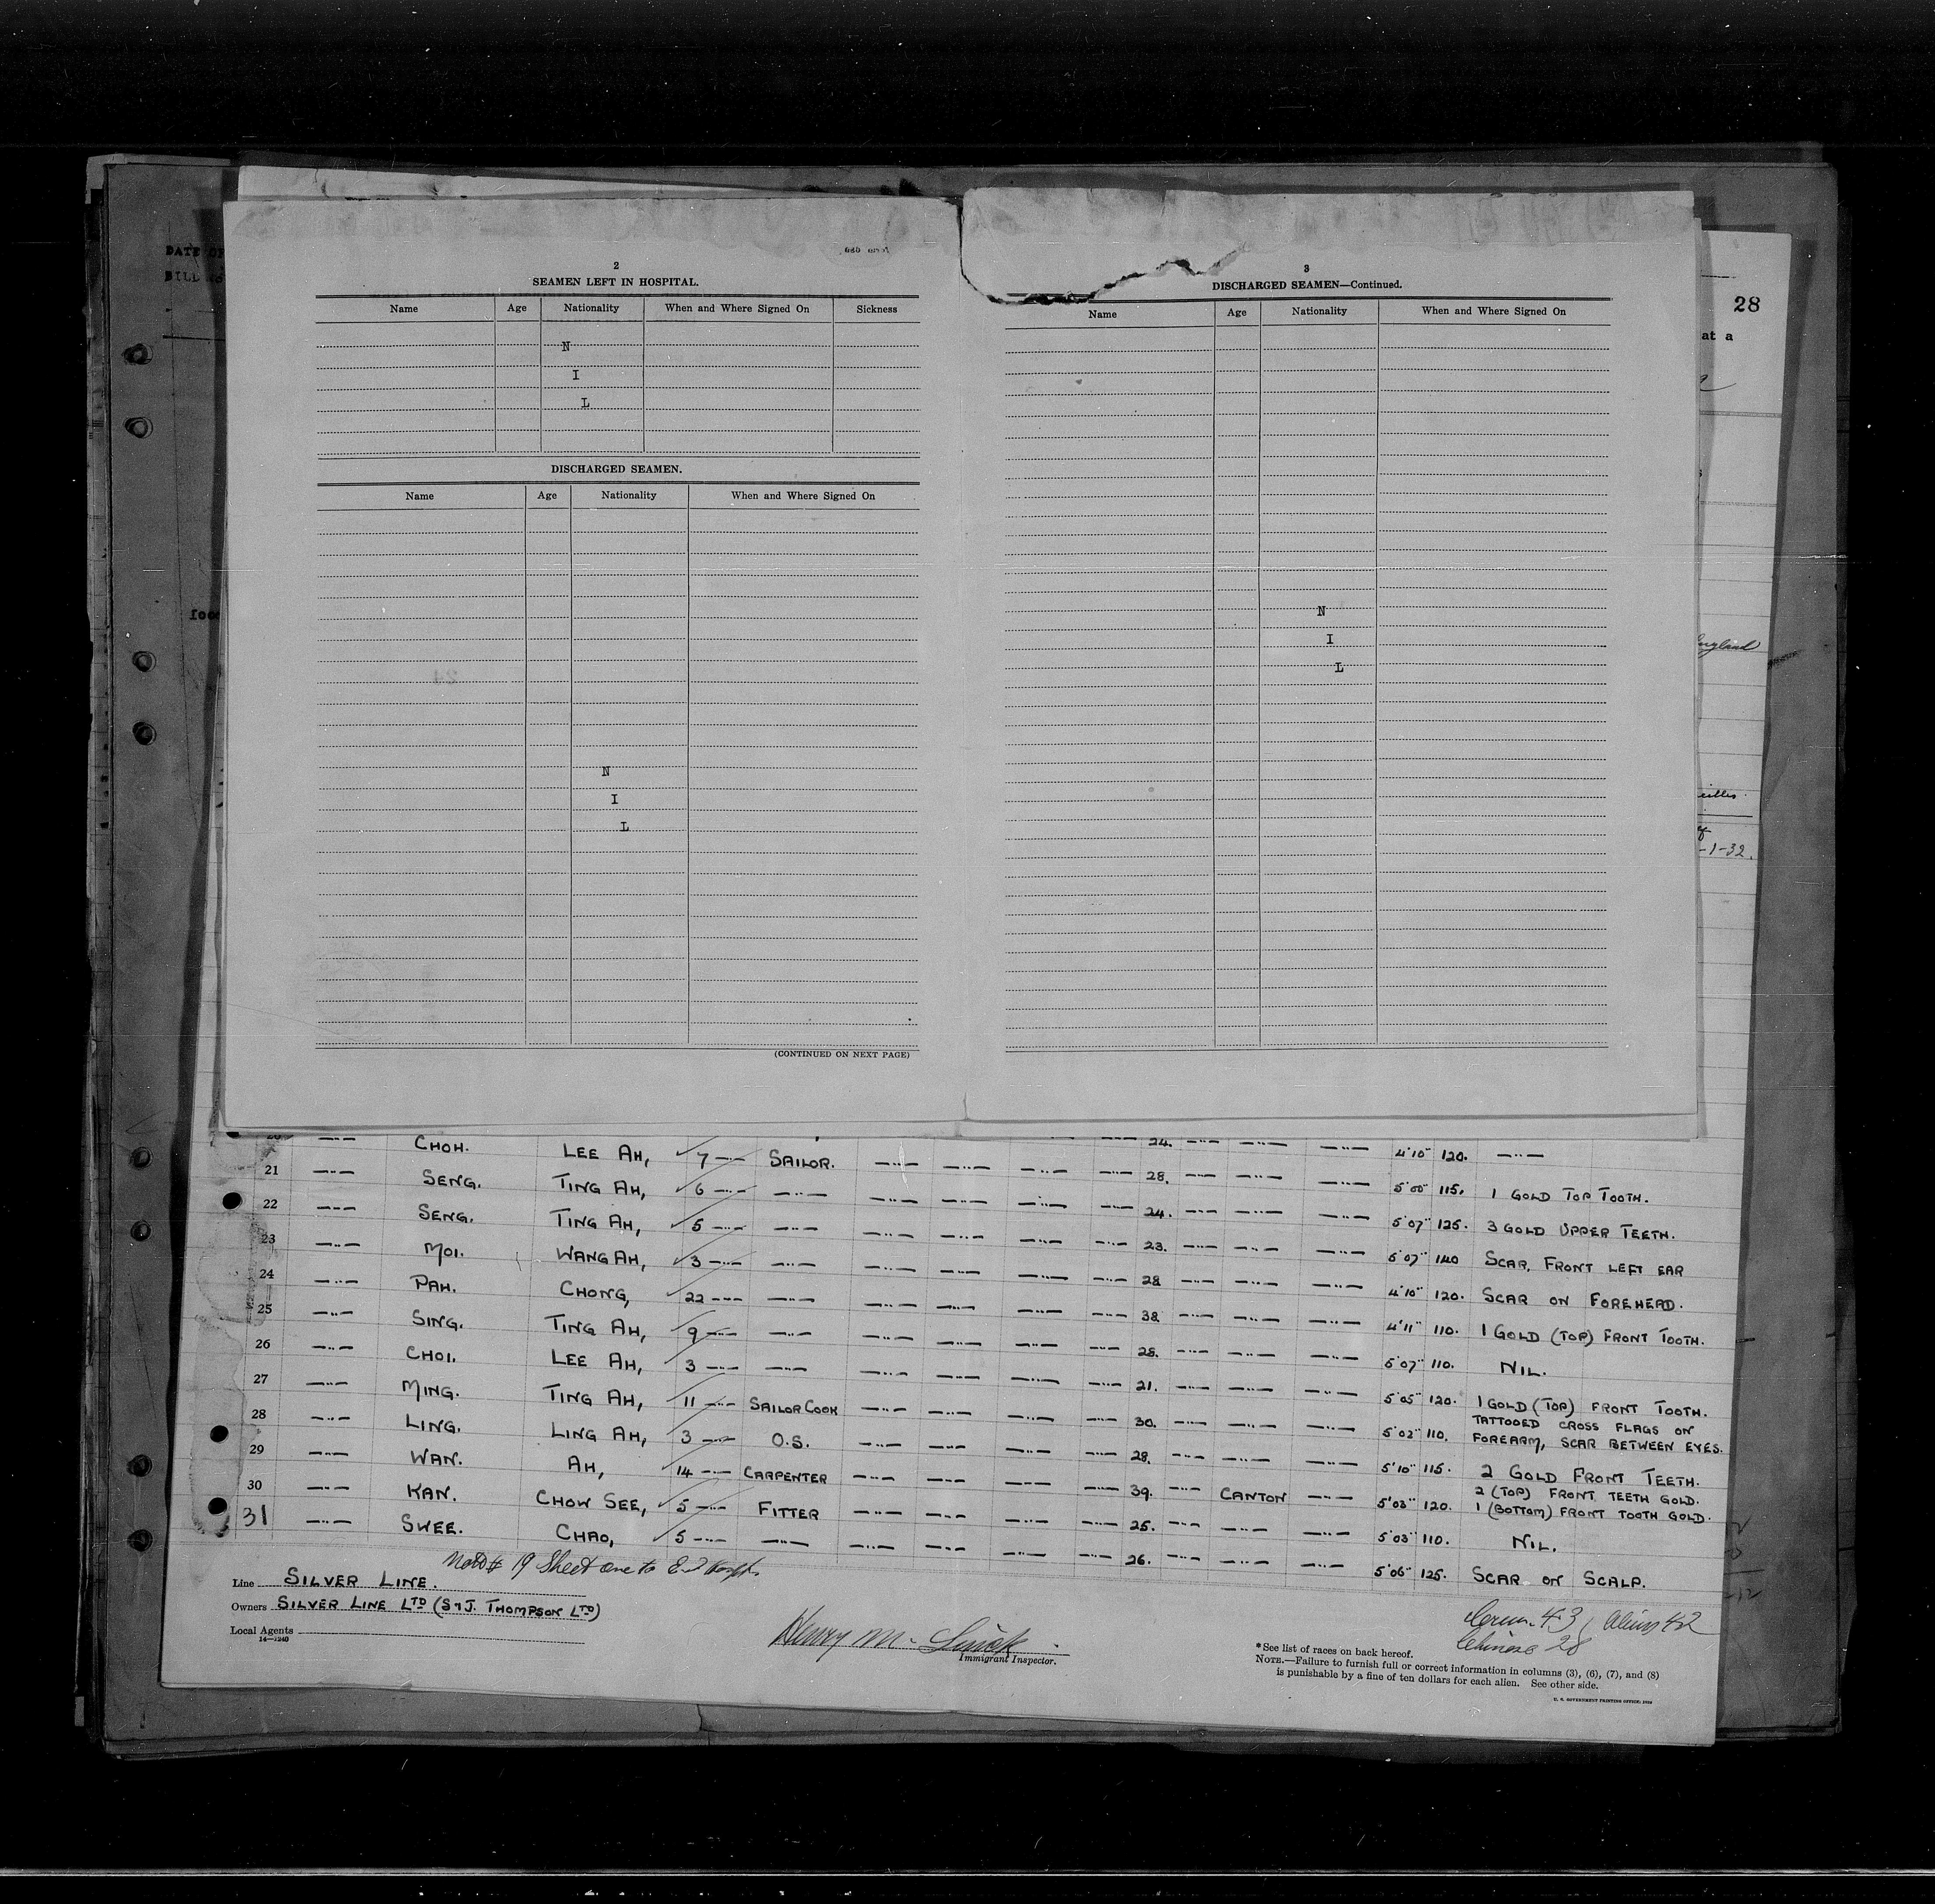 DATE OF
BILL
2
SEAMEN LEFT IN HOSPITAL.
Name Age Nationality When and Where Signed On Sickness
N
I
L
DISCHARGED SEAMEN.
Name Age Nationality When and Where Signed On
N
I
L
(CONTINUED ON NEXT PAGE)
3
DISCHARGED SEAMEN—Continued.
Name Age Nationality When and Where Signed On
N
I
L
28
at a
England
-1-32.
20 —"— CHOH. LEE AH, 7 —"— SAILOR. —"— —"— —"— —"— 24. —"— —"— —"— 4'10" 120. —"—
21 —"— SENG. TING AH, 6 —"— —"— —"— —"— —"— —"— 28. —"— —"— —"— 5'00" 115. 1 GOLD TOP TOOTH.
22 —"— SENG. TING AH, 5 —"— —"— —"— —"— —"— —"— 24. —"— —"— —"— 5'07" 125. 3 GOLD UPPER TEETH.
23 —"— MOI. WANG AH, 3 —"— —"— —"— —"— —"— —"— 23. —"— —"— —"— 5'07" 140 SCAR, FRONT LEFT EAR
24 —"— PAH. CHONG, 22 —"— —"— —"— —"— —"— —"— 28 —"— —"— —"— 4'10" 120. SCAR ON FOREHEAD.
25 —"— SING. TING AH, 9 —"— —"— —"— —"— —"— —"— 38 —"— —"— —"— 4'11" 110. 1 GOLD (TOP) FRONT TOOTH.
26 —"— CHOI. LEE AH, 3 —"— —"— —"— —"— —"— —"— 28. —"— —"— —"— 5'07" 110. NIL.
27 —"— MING. TING AH, 11 —"— SAILOR COOK —"— —"— —"— —"— 21. —"— —"— —"— 5'05" 120. 1 GOLD (TOP) FRONT TOOTH.
28 —"— LING. LING AH, 3 —"— O.S. —"— —"— —"— —"— 30. —"— —"— —"— 5'02" 110. TATTOOED CROSS FLAGS ON
FOREARM, SCAR BETWEEN EYES.
29 —"— WAN. AH, 14 —"— CARPENTER —"— —"— —"— —"— 28. —"— —"— —"— 5'10" 115. 2 GOLD FRONT TEETH.
30 —"— KAN. CHOW SEE, 5 —"— FITTER —"— —"— —"— —"— 39. —"— CANTON —"— 5'03" 120. 2 (TOP) FRONT TEETH GOLD.
1 (BOTTOM) FRONT TOOTH GOLD.
31 —"— SWEE. CHAO, 5 —"— —"— —"— —"— —"— —"— 25. —"— —"— —"— 5'03" 110. NIL.
26. —"— —"— —"— 5'06" 125. SCAR ON SCALP.
19 Sheet one to
Line SILVER LINE.
Owners SILVER LINE LTD (S & J. THOMPSON LTD)
Local Agents
14—1240
Henry M.
Immigrant Inspector.
43 Aliens 42
Chinese 28
*See list of races on back hereof.
NOTE.—Failure to furnish full or correct information in columns (3), (6), (7), and (8)
is punishable by a fine of ten dollars for each alien. See other side.
U. S. GOVERNMENT PRINTING OFFICE: